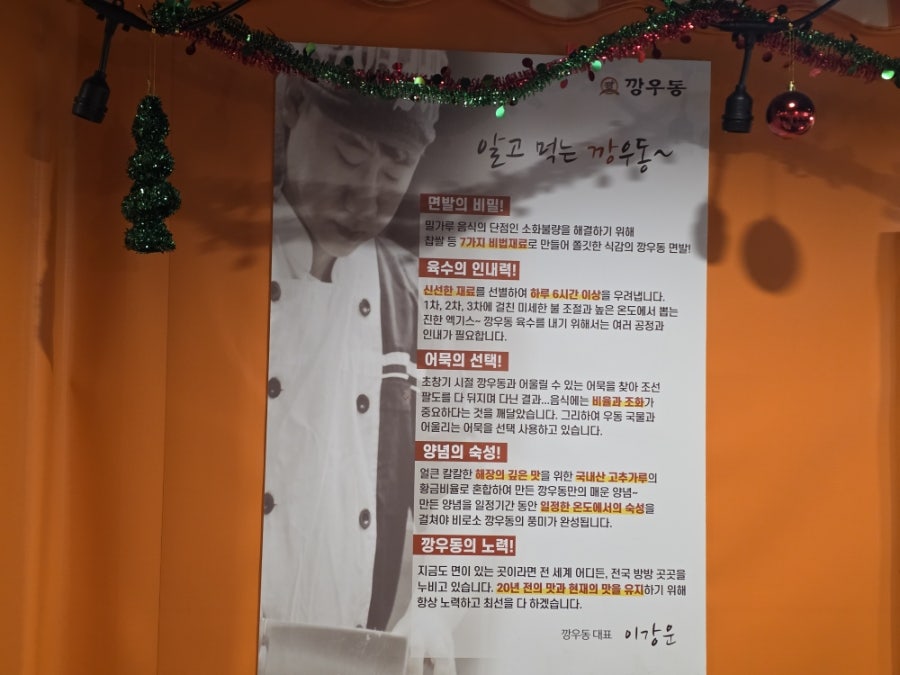 깡우동
알고 먹는 깡우동~
면발의 비밀!
밀가루 음식의 단점인 소화불량을 해결하기 위해
찹쌀 등 7가지 비법재료로 만들어 쫄깃한 식감의 깡우동 면발!
육수의 인내력!
신선한 재료를 선별하여 하루 6시간 이상을 우려냅니다.
1차, 2차, 3차에 걸친 미세한 불 조절과 높은 온도에서 뽑는
진한 엑기스~ 깡우동 육수를 내기 위해서는 여러 공정과
인내가 필요합니다.
어묵의 선택!
초창기 시절 깡우동과 어울릴 수 있는 어묵을 찾아 조선
팔도를 다 뒤지며 다닌 결과...음식에는 비율과 조화가
중요하다는 것을 깨달았습니다. 그리하여 우동 국물과
어울리는 어묵을 선택 사용하고 있습니다.
양념의 숙성!
얼큰 칼칼한 해장의 깊은 맛을 위한 국내산 고추가루의
황금비율로 혼합하여 만든 깡우동만의 매운 양념~
만든 양념을 일정기간 동안 일정한 온도에서의 숙성을
걸쳐야 비로소 깡우동의 풍미가 완성됩니다.
깡우동의 노력!
지금도 면이 있는 곳이라면 전 세계 어디든, 전국 방방 곳곳을
누비고 있습니다. 20년 전의 맛과 현재의 맛을 유지하기 위해
항상 노력하고 최선을 다 하겠습니다.
깡우동 대표 이강운